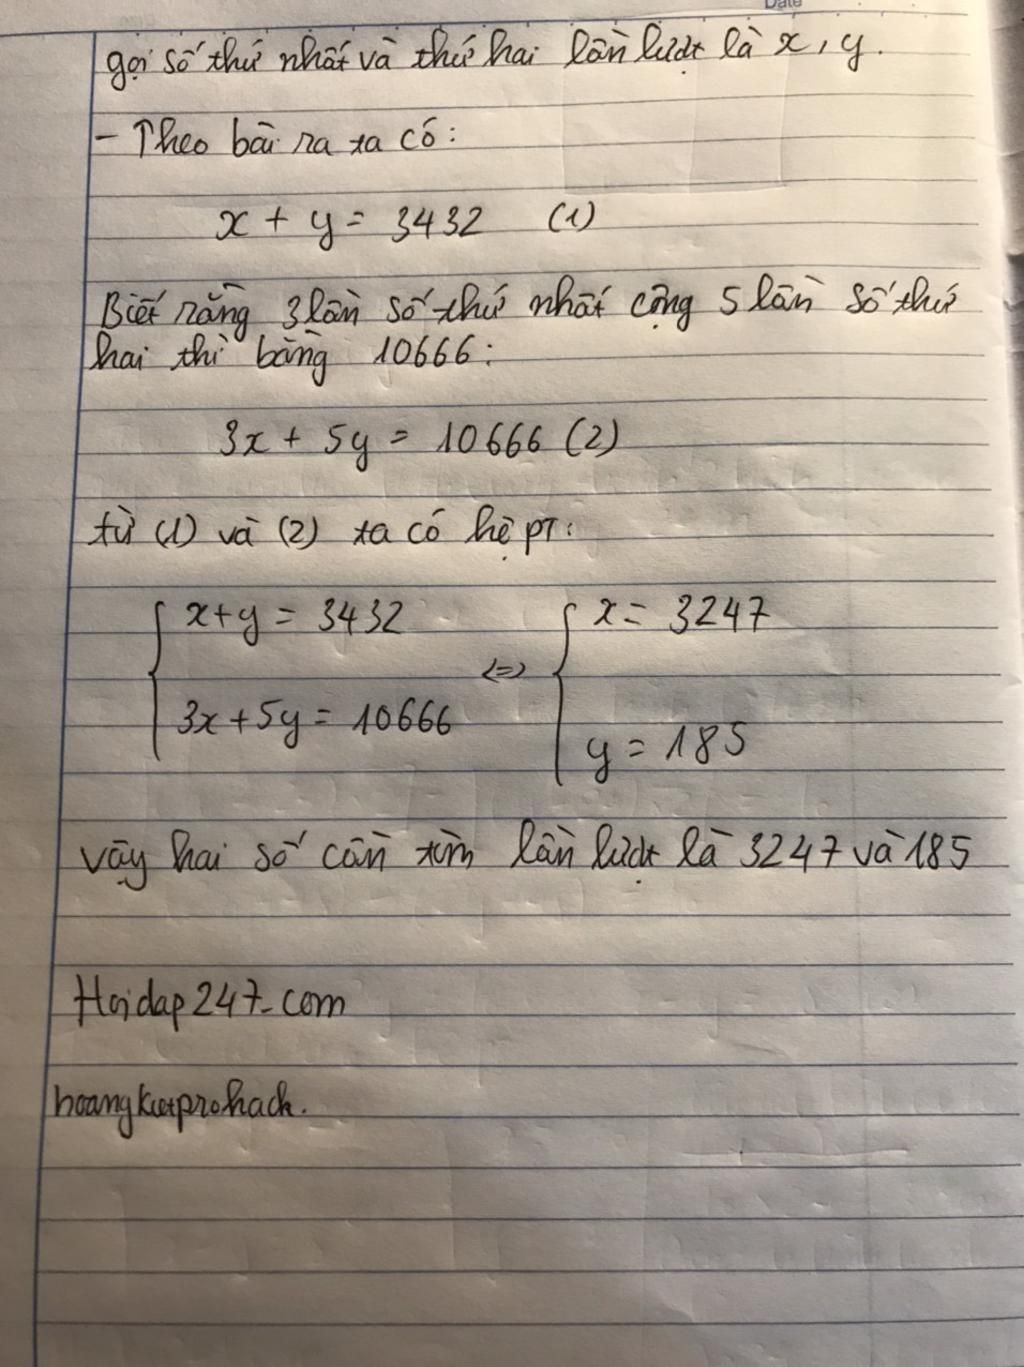 Date
gọi số thứ nhất và thứ hai lần lượt là x, y.
- Theo bài ra ta có:
x + y = 3432 (1)
Biết rằng 3 lần số thứ nhất cộng 5 lần số thứ
hai thì bằng 10666:
3x + 5y = 10666 (2)
từ (1) và (2) ta có hệ PT:
x+y = 3432 <=> x = 3247
3x+5y = 10666 y = 185
vậy hai số cần tìm lần lượt là 3247 và 185
Hoidap247.com
hoangkietprohach.